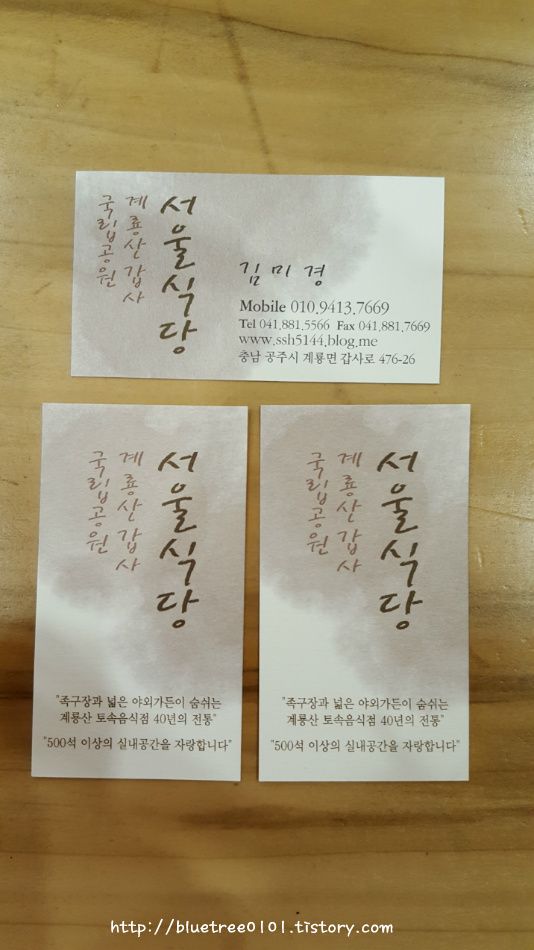 서울식당
계룡산 갑사
국립공원
김미경
Mobile 010.9413.7669
Tel 041.881.5566 Fax 041.881.7669
www.ssh5144.blog.me
충남 공주시 계룡면 갑사로 476-26
서울식당
계룡산 갑사
국립공원
"족구장과 넓은 야외가든이 숨쉬는
계룡산 토속음식점 40년의 전통"
"500석 이상의 실내공간을 자랑합니다"
서울식당
계룡산 갑사
국립공원
"족구장과 넓은 야외가든이 숨쉬는
계룡산 토속음식점 40년의 전통"
"500석 이상의 실내공간을 자랑합니다"
http://bluetree0101.tistory.com